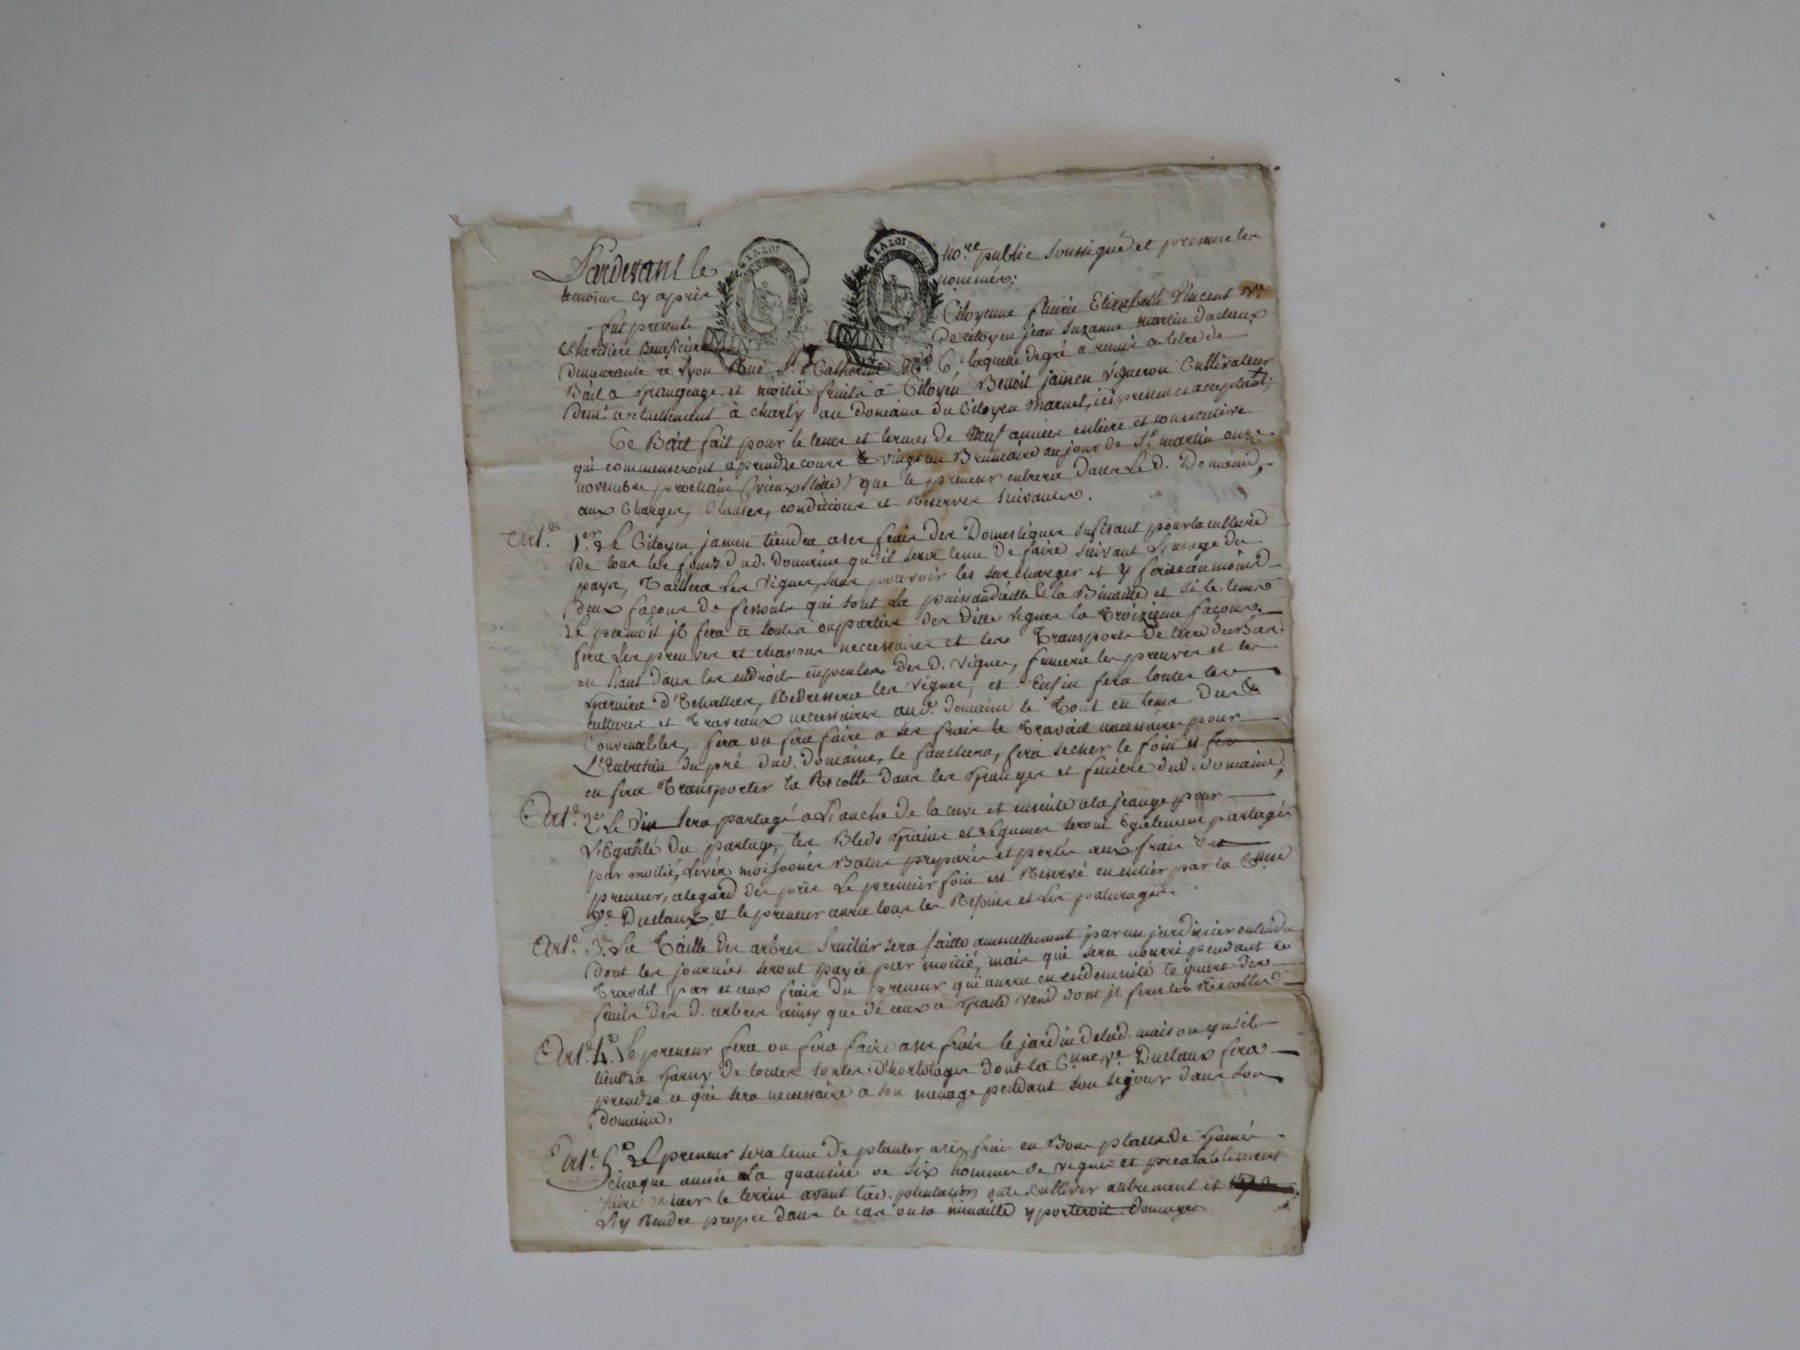 Pardevant le no.re public soussigné et presence les
temoins cy après nommés;
fut presente Citoyenne fleurie Elizabeth Vincent V.e
heritiere Beneficiaire de citoyen jean Suzanne martin duclaux
demeurante a Lyon Rue S.te Catherine N.o 6, laquelle de gré a remis a titre de
Bail a Grangeage et moitié fruits à Citoyen Benoit jainen vigneron Cultivateur
dem.t actuellement à charly au Domaine du Citoyen Marnet, ici present et acceptant;
Ce Bail fait pour le tems et termes de Neuf années entiere et consecutive
qui commenseront a prendre cours le vingt un Brumaire au jour de S.t martin onze
novembre prochain (vieux stile) que le preneur entrera dans Le d. Domaine,
aux Charges, Clauses, conditions et Reserves suivantes.
Art. 1.er Le Citoyen jainen tiendra a ses frais des Domestiques sufisant pour la culture
de tous les fonds dud. domaine qu'il sera tenu de faire suivant L'usage du
pays, Taillera Les vignes, sans pouvoir les surcharger et y faire au moins
deux façons de fessouts qui sont La et la Binaille et si le tems
Le permet il fera a toutes ou parties des dittes vignes la Troizieme façon
fera Les preuves et chavons neccessaires et les Transports de terre d'en bas
en haut dans les endroits en pentes des d. vignes, fumera les preuves et les
Garnira d'Echallas, Redressera les vignes, et Enfin fera toutes les
cultures et Travaux necessaires aud. domaine le Tout en tems dus &
Convenables, fera ou fera faire a ses frais le Travail necessaires pour
L'Entretien du pré dud. domaine, le fauchera, fera secher le foin et
en fera Transporter la Recolte dans les Granges et feniere dud. domaine,
Art. 2.e Le Vin sera partagé a L'anche de la cuve et ensuite a la jeauge pour
L'Egalité du partage, les Bleds Grains et Legumes seront Egalement partagés
par moitié, Levés moissonés Batus preparés et portés aux frais du
preneur, a legard des prés Le premier foin est Reservé en entier par la C.nne
V.e Duclaux et le preneur aura tous les Regains et Les paturages.
Art. 3.e La Taille des arbres fruitier sera faitte annuellement par un jardinier entendu
dont les journées seront payée par moitié, mais qui sera nourri pendant ce
Travail par et aux frais du preneur qui aura en endemnité le quart des
fruits des d. arbres ainsy que de ceux a Grand Vend dont il fera les Recoltes
Art. 4.e Le preneur fera ou fera faire a ses frais le jardin de lad. maison qu'il
tiendra Garny de toutes sortes d'hortolages dont la C.nne V.e Duclaux fera
prendre ce qui sera necessaire a son menage pendant son sejour dans son
domaine.
Art. 5.e Le preneur sera tenu de planter a ses frais en Bons plants de Gamés
chaque année La quantité de Six hommes de vignes et prealablement
faire miner le terrein avant lad. plantation ou le Cultiver autrement et
L'y Rendre propre dans le cas ou la minaille y porteroit domages